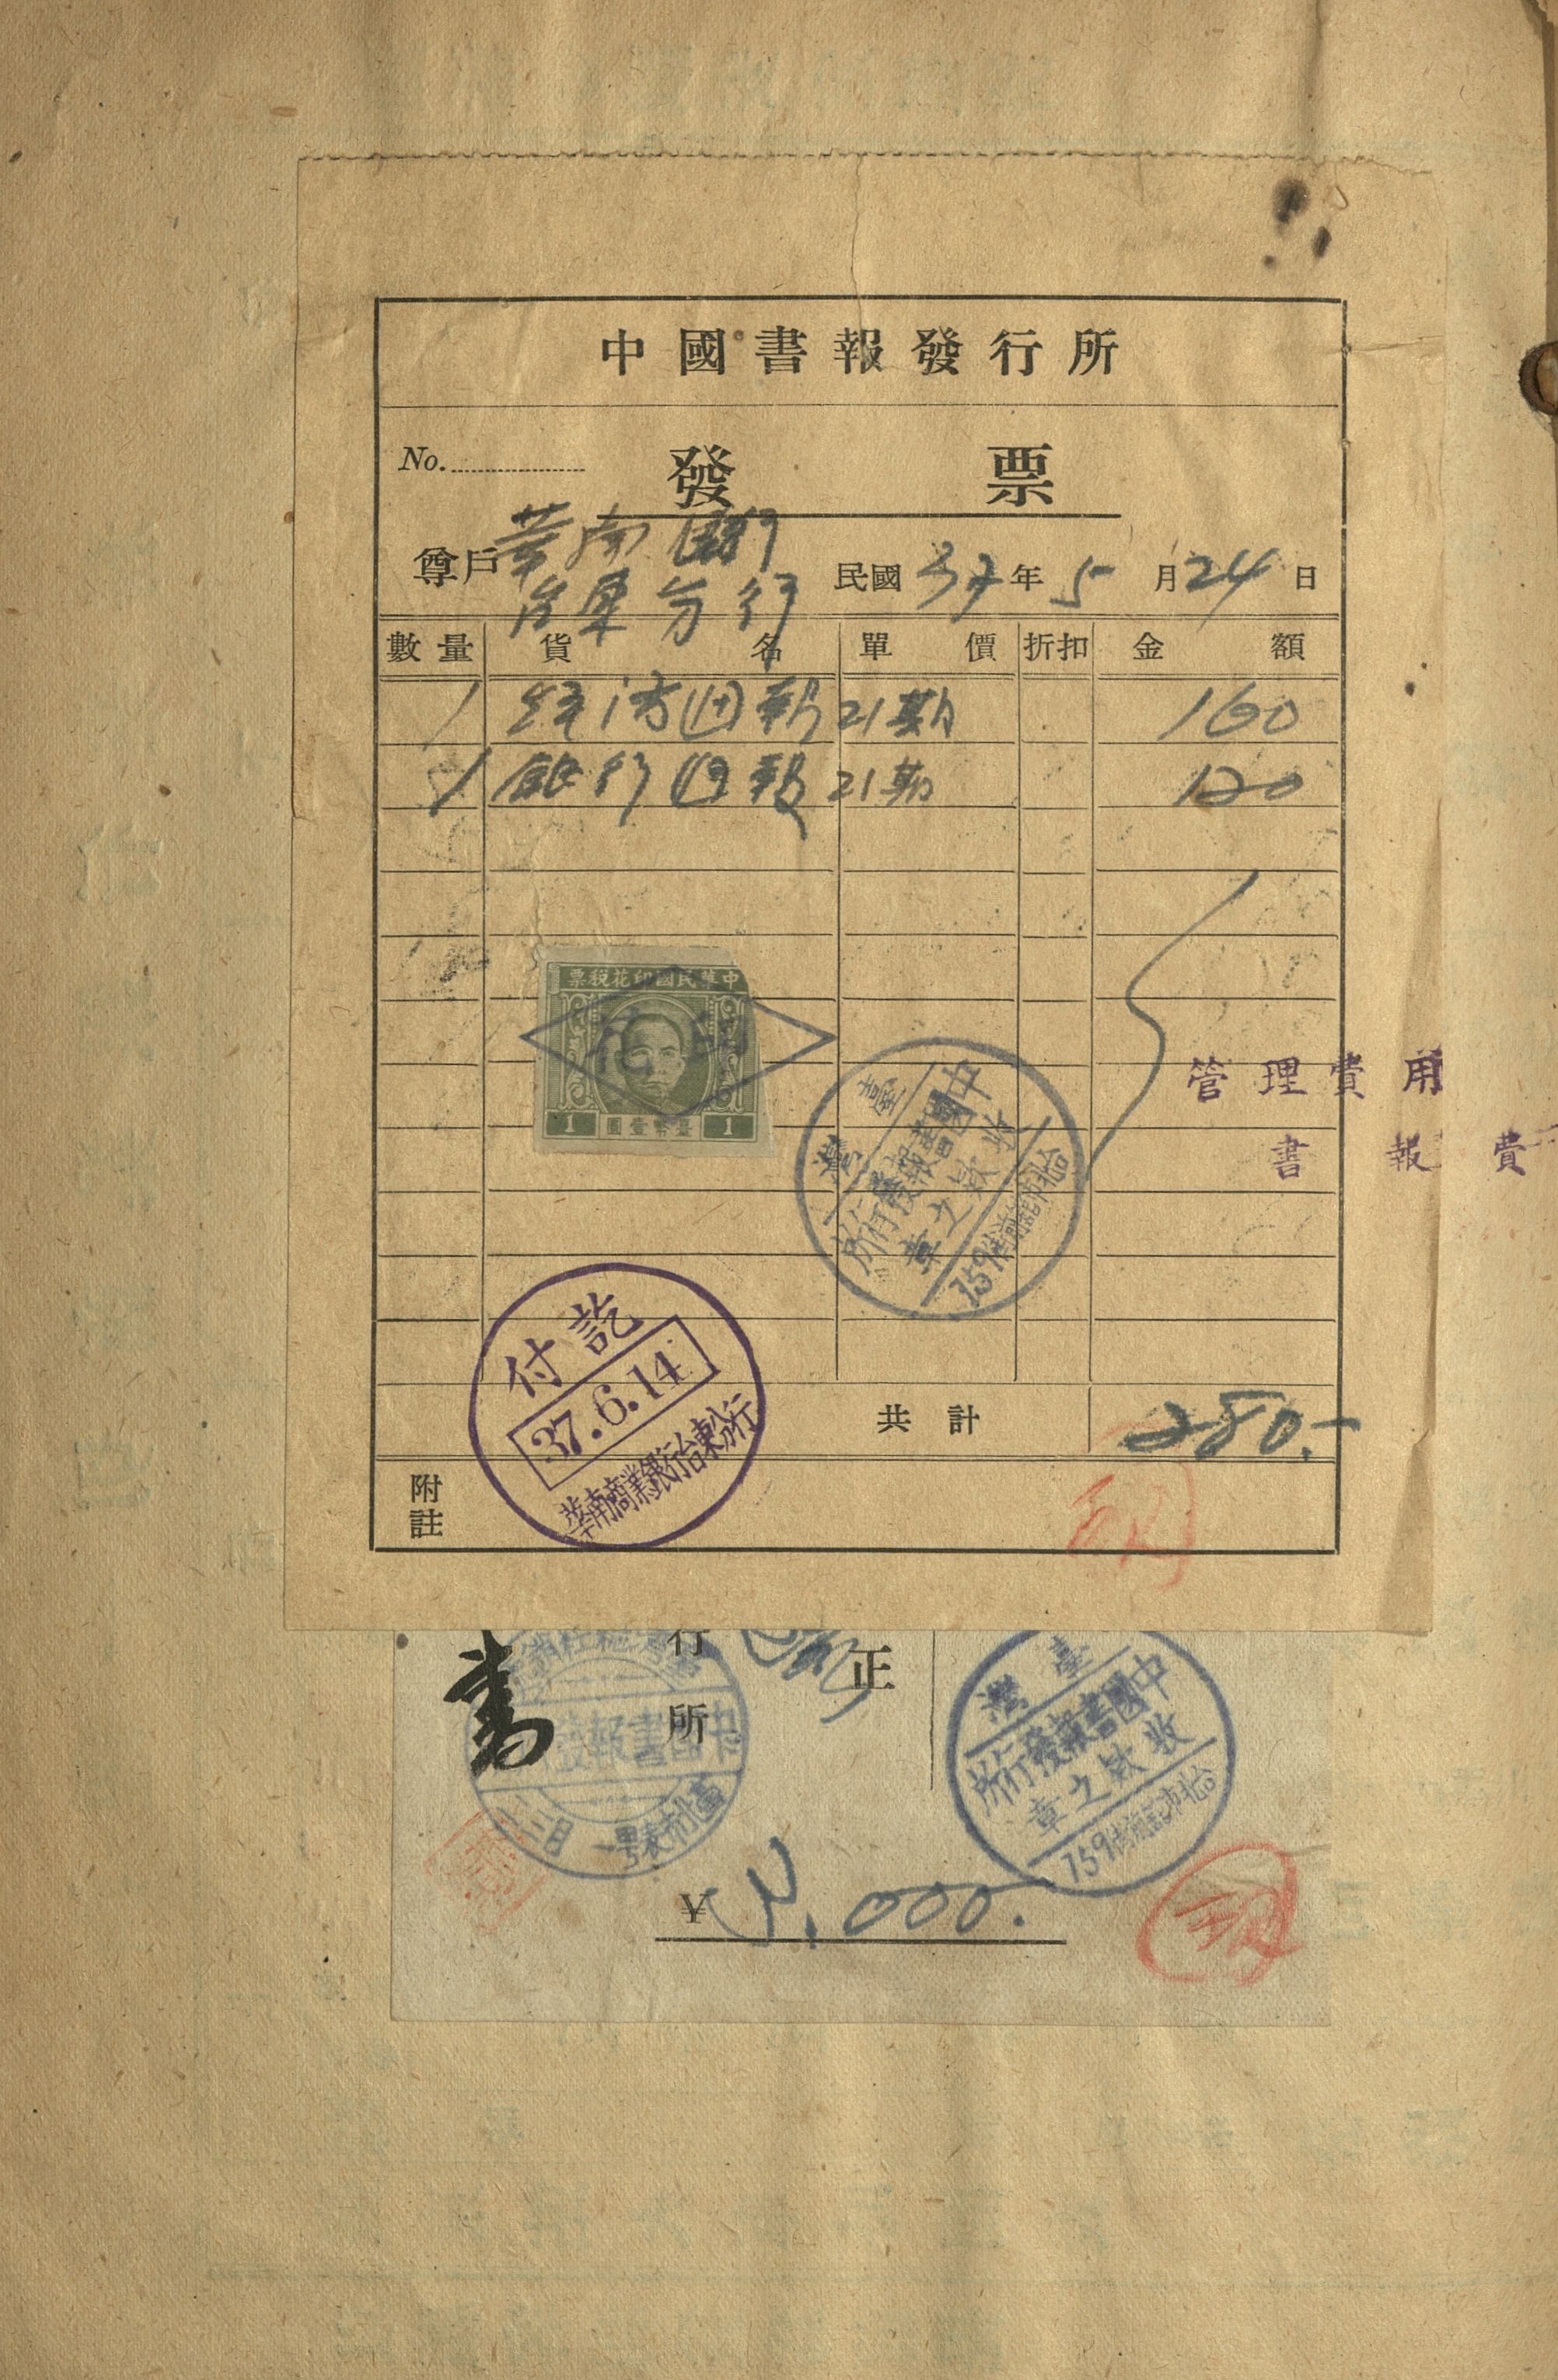 中國書報發行所
No.
發票
尊戶 華南銀行
台東分行
民國 37 年 5 月 24 日
數量 貨名 單價 折扣 金額
1 經濟週報 21期 160
1 銀行週報 21期 120
中華民國印花稅票
1 臺幣壹圓 1
臺灣
中國書報發行所
收款之章
管理費用
書報費
付訖
37.6.14
華南商業銀行台東分行
共計 280.-
附註
行所
正
中國書報發
臺灣
中國書報發行所
收款之章
¥ 3,000.